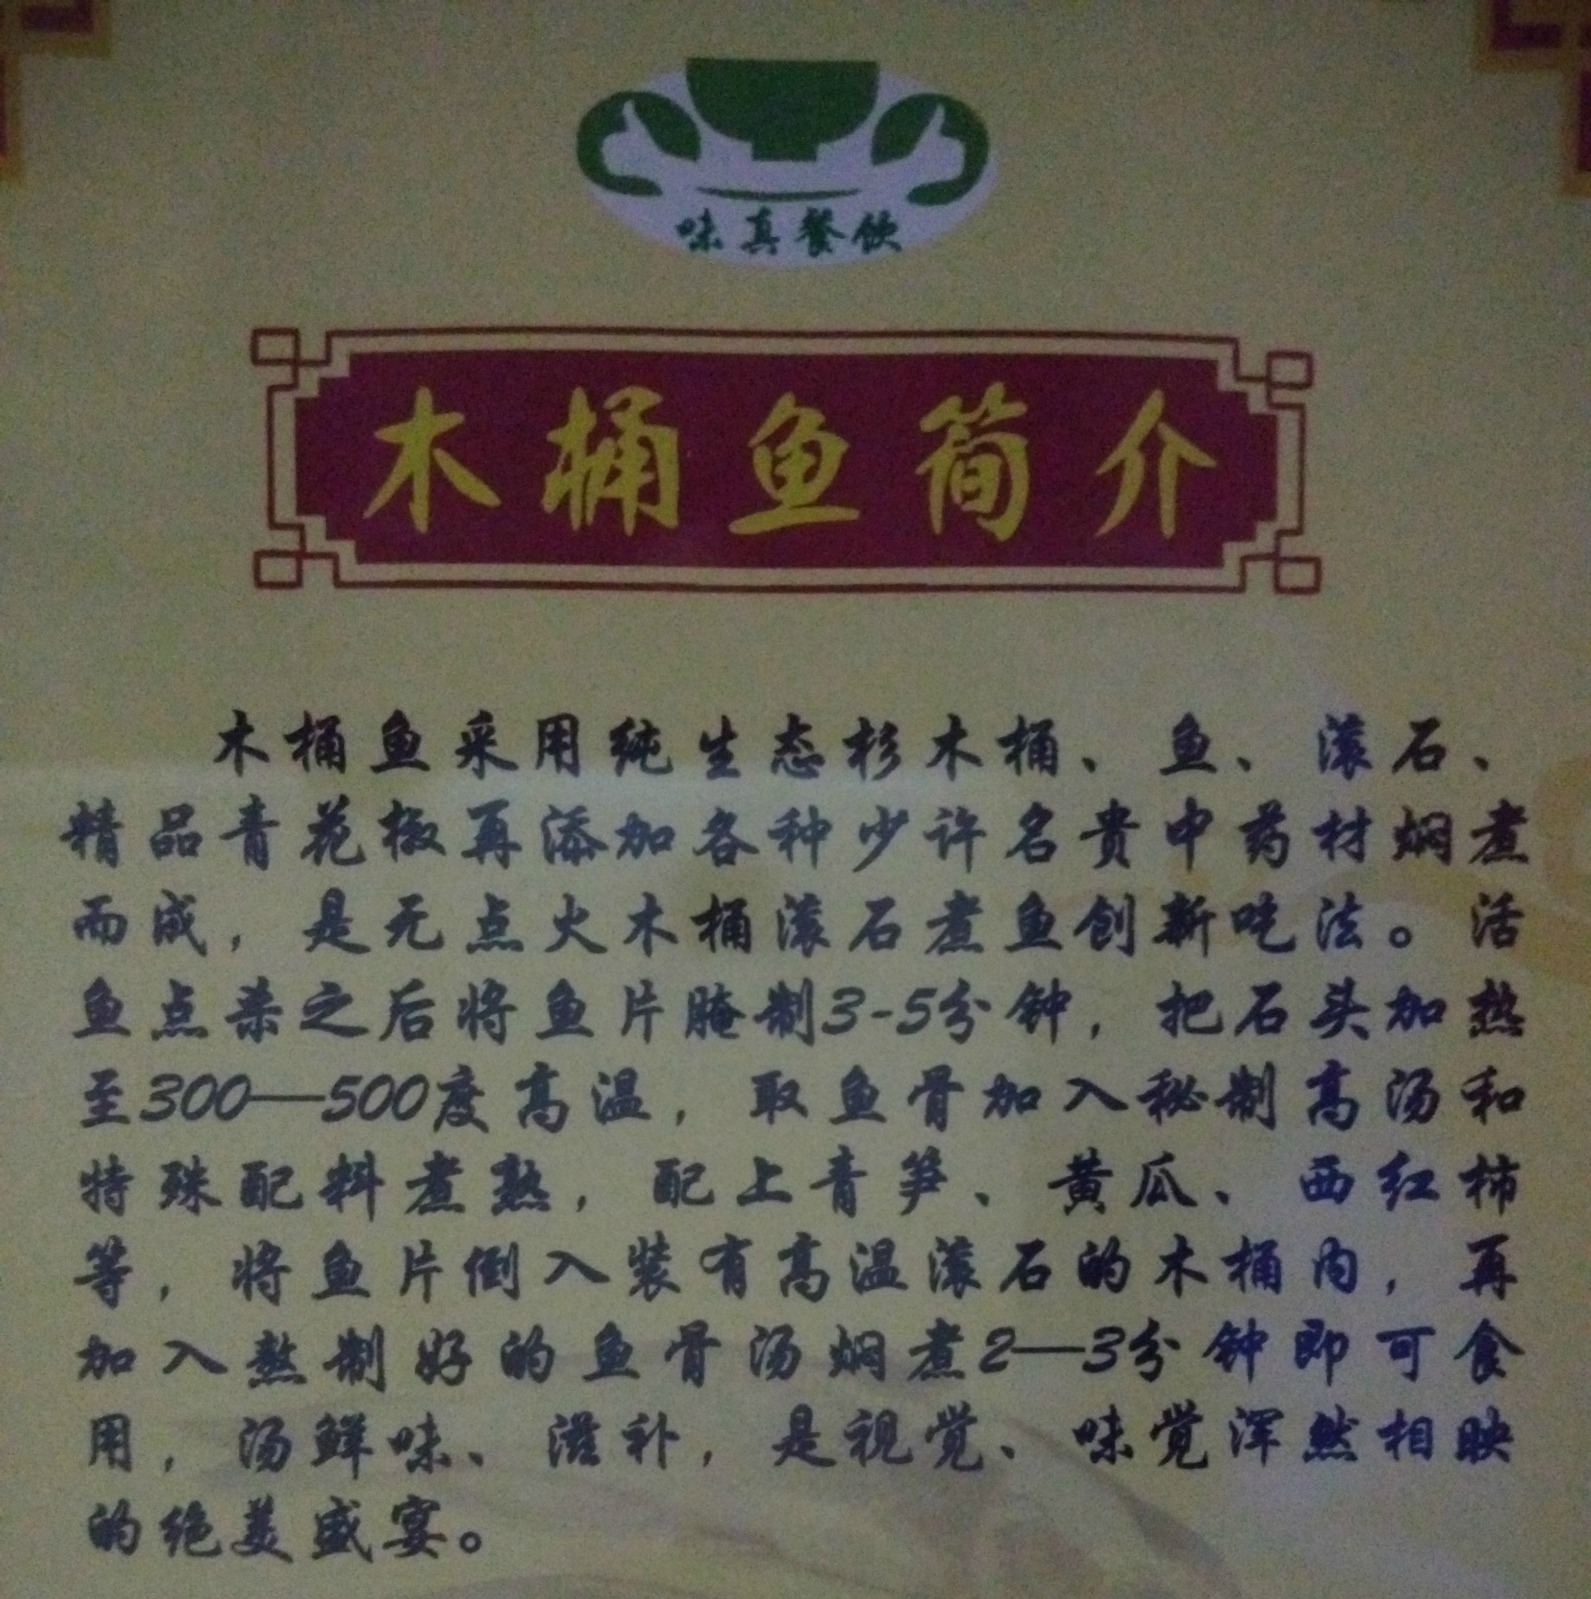 味真餐饮
木桶鱼简介
木桶鱼采用纯生态杉木桶、鱼、滚石、
精品青花椒再添加各种少许名贵中药材焖煮
而成，是无点火木桶滚石煮鱼创新吃法。活
鱼点杀之后将鱼片腌制3-5分钟，把石头加热
至300—500度高温，取鱼骨加入秘制高汤和
特殊配料煮熟，配上青笋、黄瓜、西红柿
等，将鱼片倒入装有高温滚石的木桶内，再
加入熬制好的鱼骨汤焖煮2—3分钟即可食
用，汤鲜味、滋补，是视觉、味觉浑然相映
的绝美盛宴。